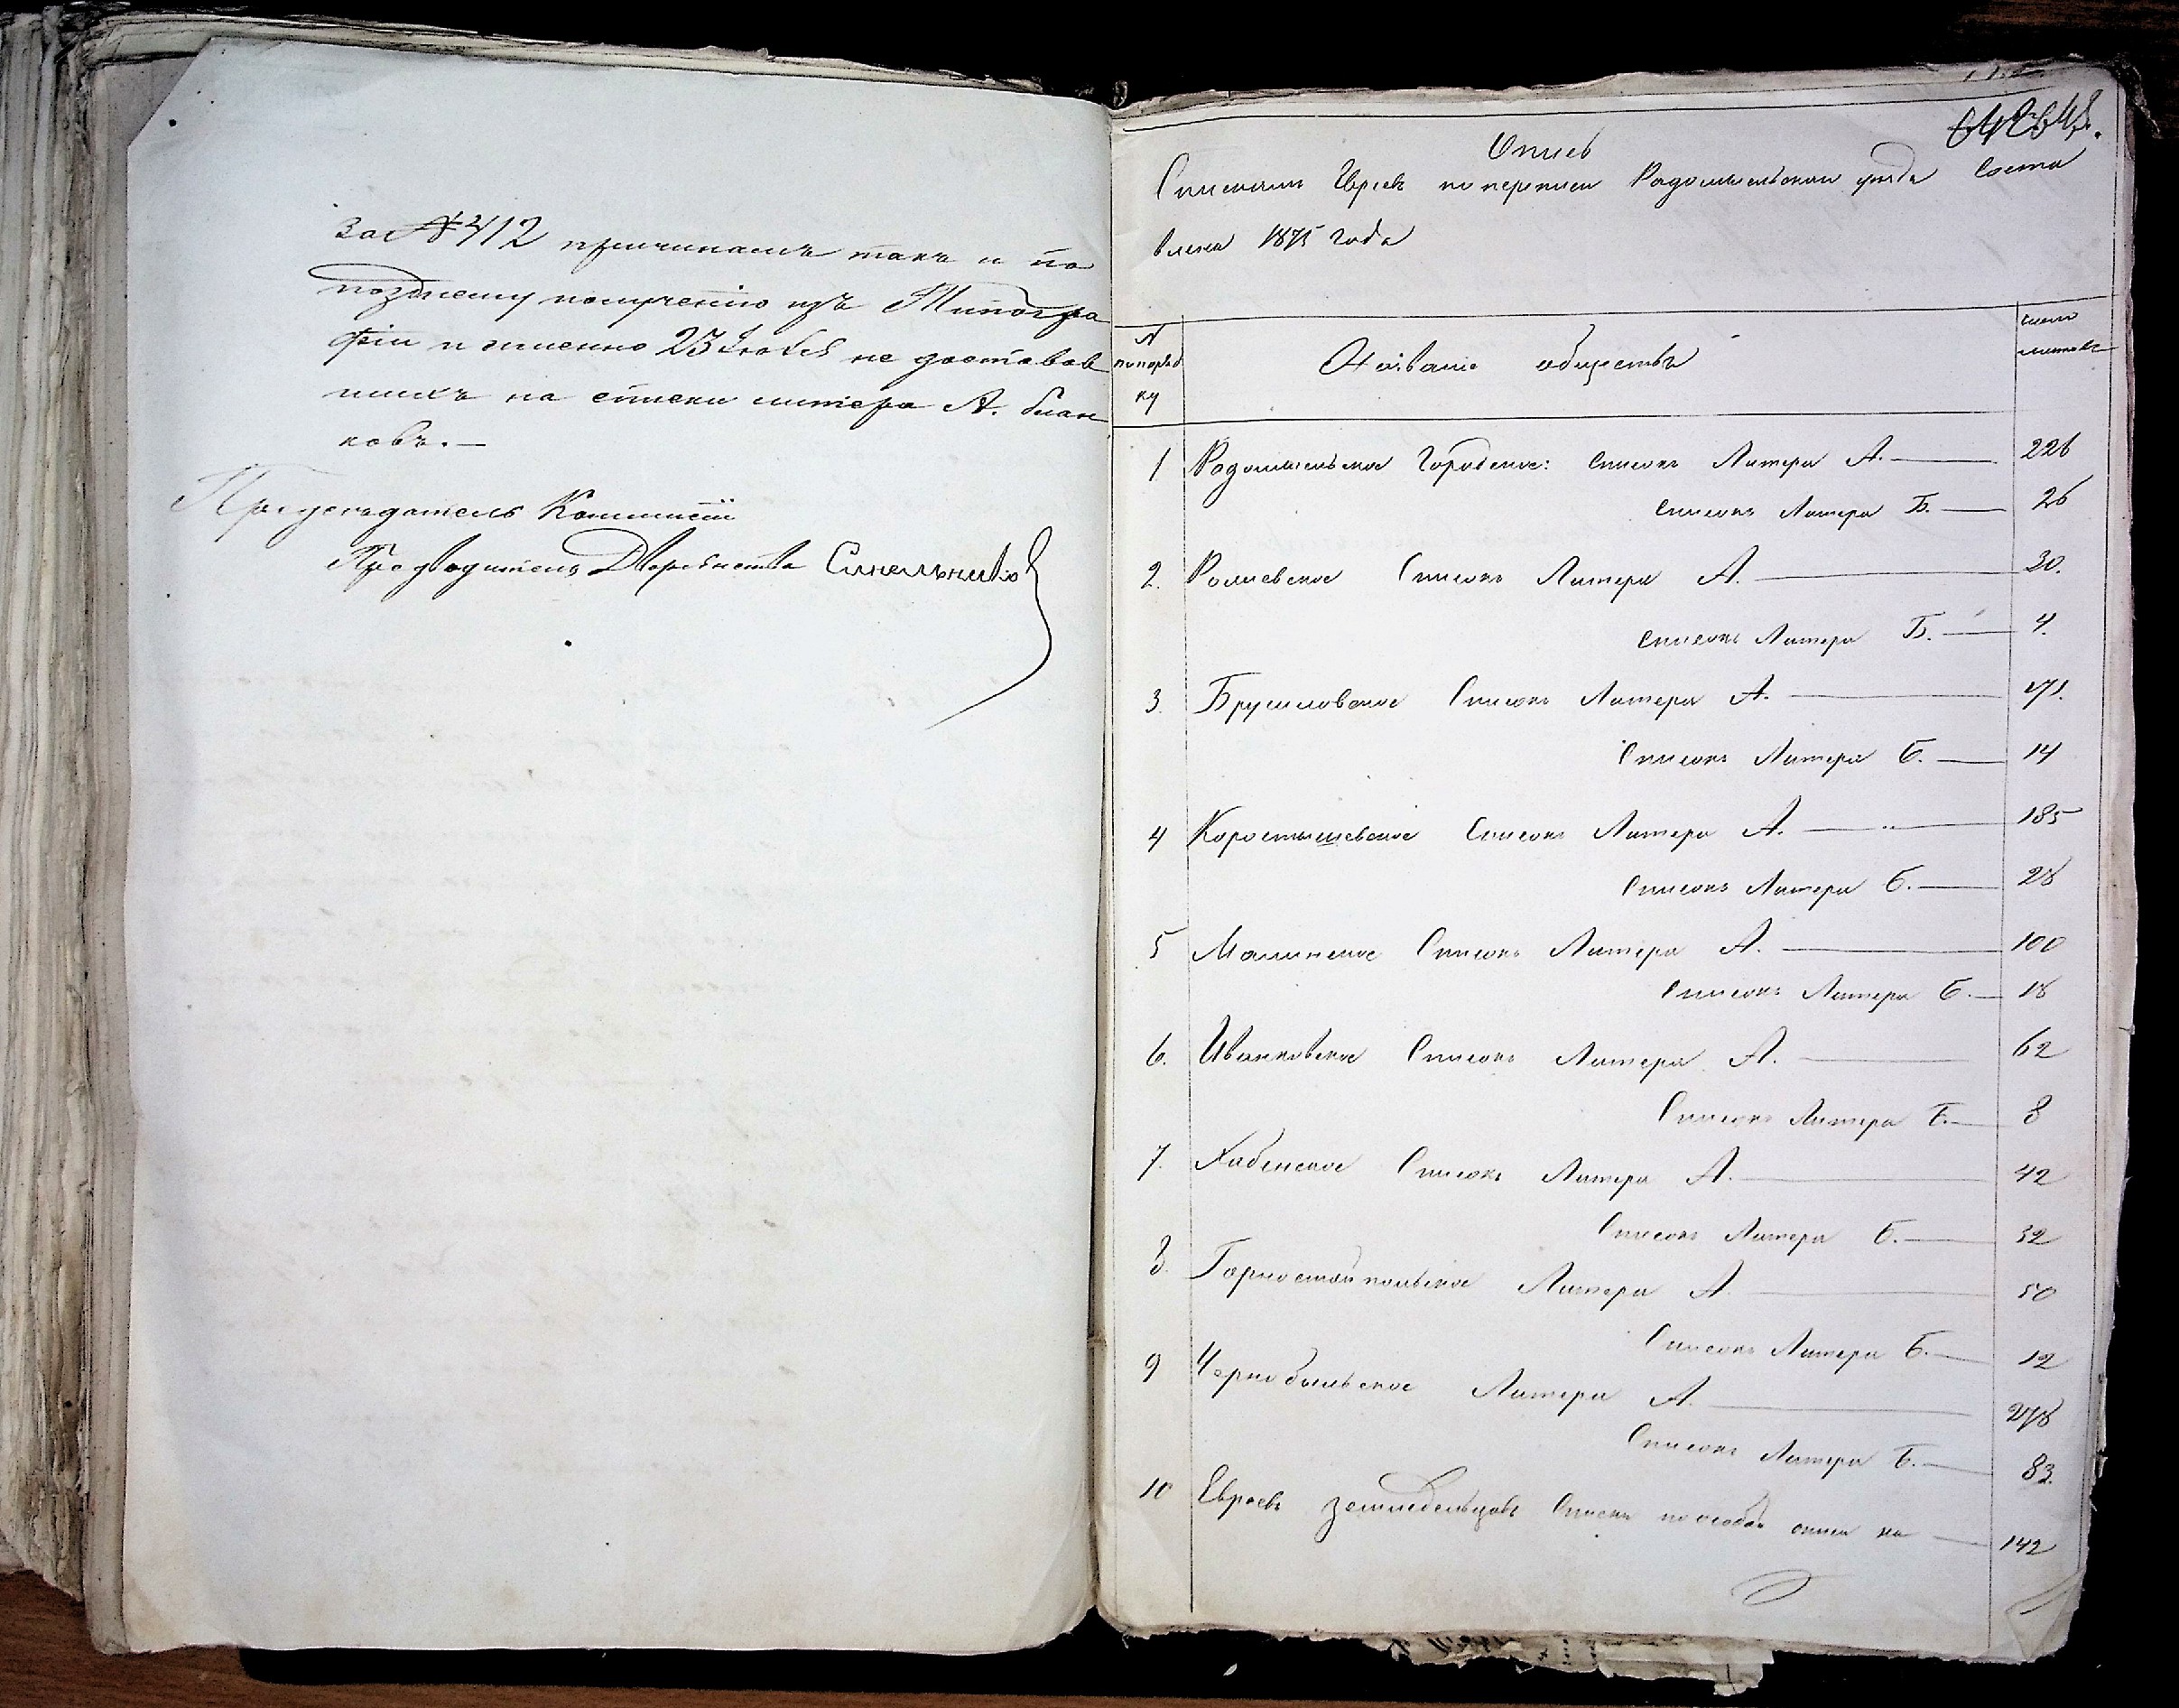 За №412 причинамъ такъ и по
позднему полученію изъ Типогра
фіи и именно 23 Іюля не доставав
шихъ на списки литера А. блан
ковъ.—
Председатель Коммисіи
Предводитель Дворянства Синельников
Опись
Спискамъ Евреевъ по переписи Радомысльскаго уезда Соста
влена 1875 года
№
по поряд
ку
Названіе обществъ
число
листовъ
1 Радомысльское Городское: списокъ Литера А. — 226
Списокъ Литера Б. — 26
2. Списокъ Литера А. — 30.
Списокъ Литера Б. — 4.
3. Брусиловское Списокъ Литера А. — 171.
Списокъ Литера Б. — 14
4 Коростышевское Списокъ Литера А. — 185
Списокъ Литера Б. — 28
5 Малинское Списокъ Литера А. — 100
Списокъ Литера Б. — 18
6. Иванковское Списокъ Литера А. — 62
Списокъ Литера Б. — 8
7. Хабенское Списокъ Литера А. — 42
Списокъ Литера Б. — 32
8. Горностайпольское Литера А. — 50
Списокъ Литера Б. — 12
9 Чернобыльское Литера А. — 278
Списокъ Литера Б. — 83.
10 Евреевъ земледельцовъ Списки по особой описи на — 142